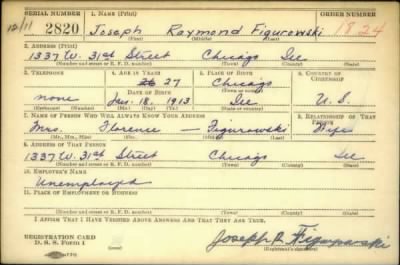 SERIAL NUMBER 1. NAME (Print) ORDER NUMBER
12/11 2820 Joseph Raymond Figurowski 1824
(First) (Middle) (Last)
2. ADDRESS (Print)
1337 W. 31st Street Chicago Ill
(Number and street or R. F. D. number) (Town) (County) (State)
3. TELEPHONE 4. AGE IN YEARS 5. PLACE OF BIRTH 6. COUNTRY OF CITIZENSHIP
26 27 Chicago
DATE OF BIRTH (Town or county)
none Jan. 18, 1913 Ill U. S.
(Exchange) (Number) (Mo.) (Day) (Yr.) (State or country)
7. NAME OF PERSON WHO WILL ALWAYS KNOW YOUR ADDRESS 8. RELATIONSHIP OF THAT PERSON
Mrs. Florence — Figurowski Wife
(Mr., Mrs., Miss) (First) (Middle) (Last)
9. ADDRESS OF THAT PERSON
1337 W. 31st Street Chicago Ill
(Number and street or R. F. D. number) (Town) (County) (State)
10. EMPLOYER'S NAME
Unemployed
11. PLACE OF EMPLOYMENT OR BUSINESS
(Number and street or R. F. D. number) (Town) (County) (State)
I AFFIRM THAT I HAVE VERIFIED ABOVE ANSWERS AND THAT THEY ARE TRUE.
REGISTRATION CARD
D. S. S. Form 1 Joseph R. Figurowski
(Registrant's signature)